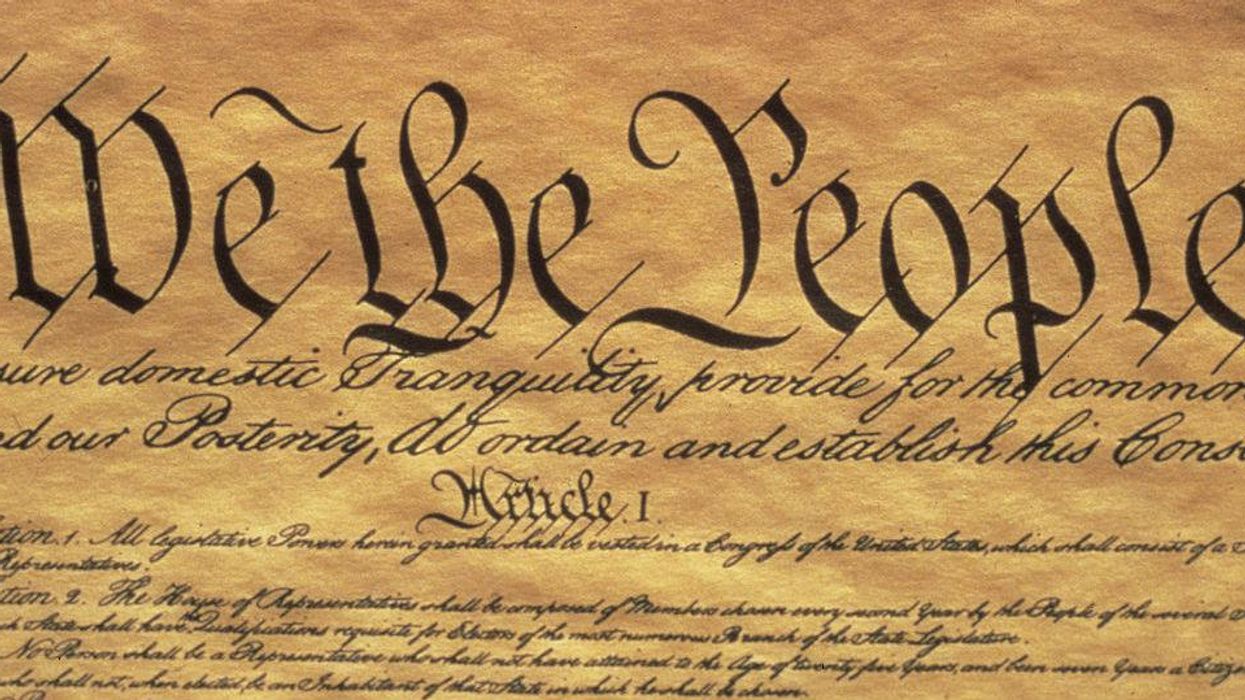 We the People
sure domestic Tranquility, provide for the common
d our Posterity, do ordain and establish this Cons
Article. I.
ction. 1. All legislative Powers herein granted shall be vested in a Congress of the United States, which shall consist of a
Representatives.
ction. 2. The House of Representatives shall be composed of Members chosen every second Year by the People of the several
ch State shall have the Qualifications requisite for Electors of the most numerous Branch of the State Legislature.
No Person shall be a Representative who shall not have attained to the Age of twenty five Years, and been seven Years a Citize
who shall not, when elected, be an Inhabitant of that State in which he shall be chosen.